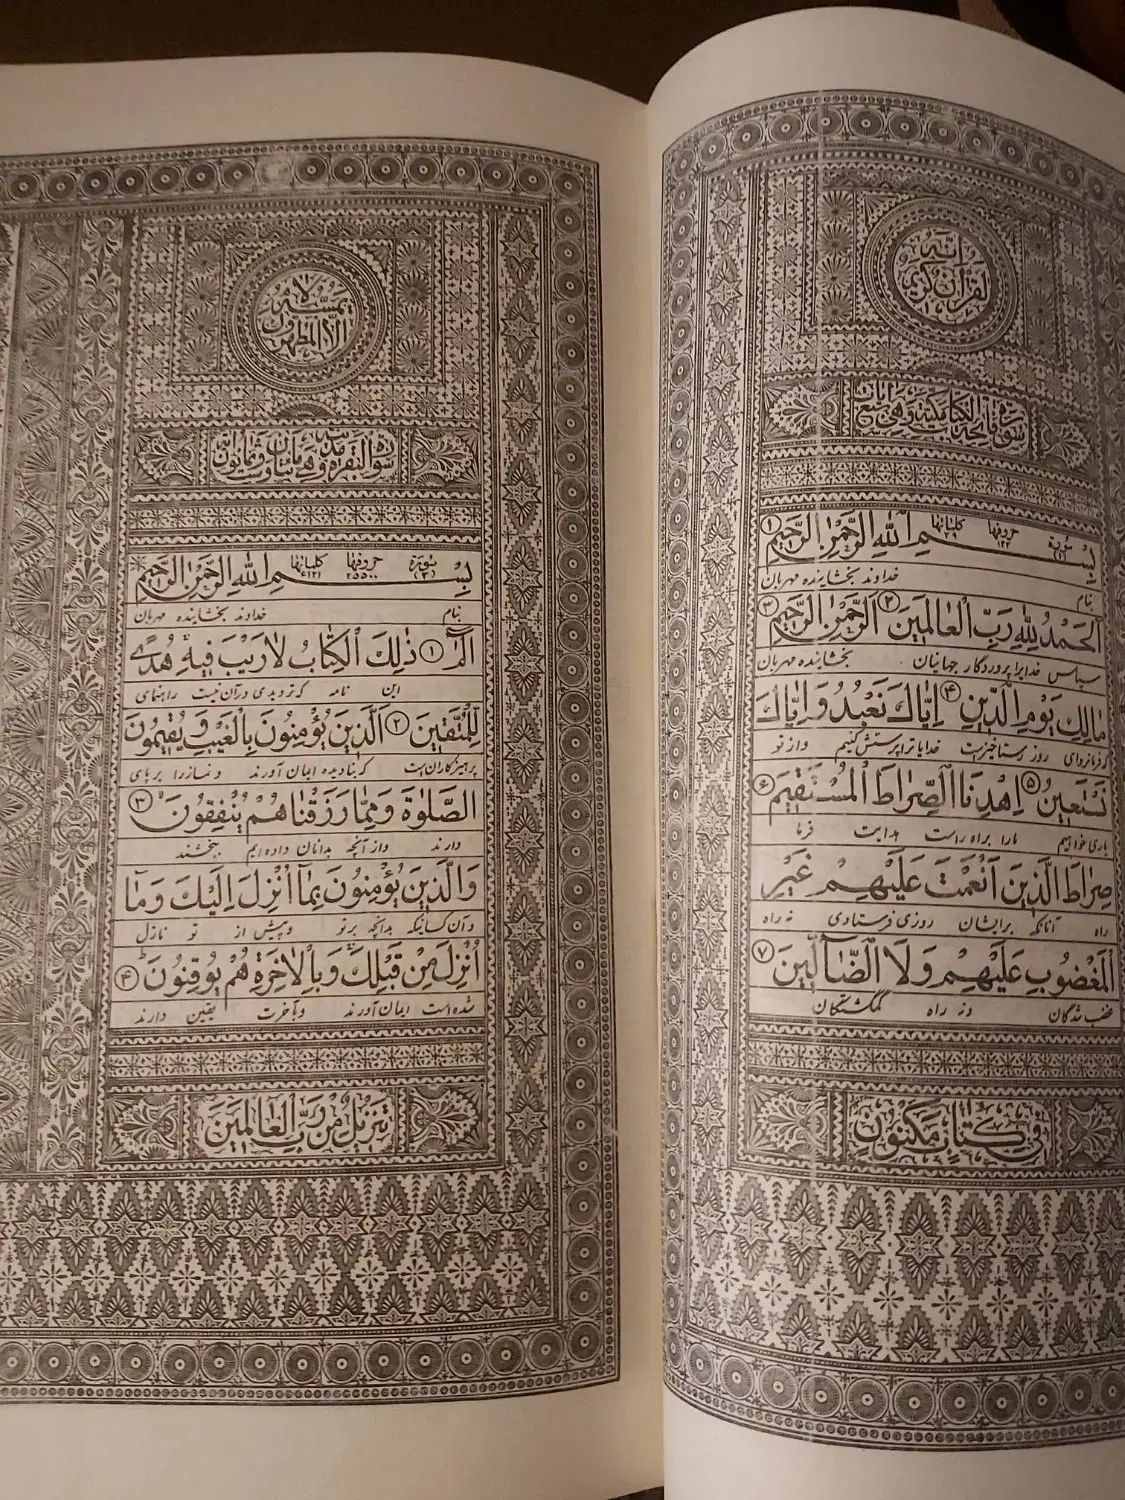 انه
لقرآن کریم
سورة فاتحة الکتاب مکیة وهی سبع آیات
سورة (۱) حروفها ۱۲۲ کلماتها ۲۹
بِسْمِ اللهِ الرَّحْمٰنِ الرَّحیمِ ۱
بنام خداوند بخشاینده مهربان
اَلْحَمْدُ لِلّٰهِ رَبِّ الْعالَمینَ ۲ اَلرَّحْمٰنِ الرَّحیمِ ۳
سپاس خدایرا پروردگار جهانیان بخشاینده مهربان
مالِكِ یَوْمِ الدّینِ ۴ اِیّاكَ نَعْبُدُ وَاِیّاكَ
فرمانروای روز رستاخیز است خدایا ترا پرستش کنیم و از تو
نَسْتَعینُ ۵ اِهْدِنَا الصِّراطَ الْمُسْتَقیمَ ۶
یاری خواهیم ما را براه راست هدایت فرما
صِراطَ الَّذینَ اَنْعَمْتَ عَلَیْهِمْ غَیْرِ
راه آنانکه برایشان روزی فرستادی نه راه
الْمَغْضُوبِ عَلَیْهِمْ وَلَا الضّآلّینَ ۷
غضب شدگان و نه راه گمگشتگان
فی کتاب مکنون
لا یمسه
الا المطهرون
سورة البقرة مدنیة وهی مائتان وثمانون
سورة (۲) حروفها ۲۵۵۰۰ کلماتها ۶۱۲۱
بِسْمِ اللهِ الرَّحْمٰنِ الرَّحیمِ
بنام خداوند بخشاینده مهربان
الٓمٓ ۱ ذٰلِكَ الْكِتابُ لارَیْبَ فیهِ هُدًی
این نامه که تردیدی در آن نیست راهنمای
لِلْمُتَّقینَ ۲ اَلَّذینَ یُؤْمِنُونَ بِالْغَیْبِ وَیُقیمُونَ
پرهیزکاران است که بنادیده ایمان آورند و نماز را بر پای
الصَّلٰوةَ وَمِمّا رَزَقْناهُمْ یُنْفِقُونَ ۳
دارند و از آنچه بدانان داده ایم ببخشند
وَالَّذینَ یُؤْمِنُونَ بِمآ اُنْزِلَ اِلَیْكَ وَمآ
و آن کسانیکه بدانچه بر تو و پیش از تو نازل
اُنْزِلَ مِنْ قَبْلِكَ وَبِالْاٰخِرَةِ هُمْ یُوقِنُونَ ۴
شده است ایمان آورند و بآخرت یقین دارند
تنزیل من رب العالمین